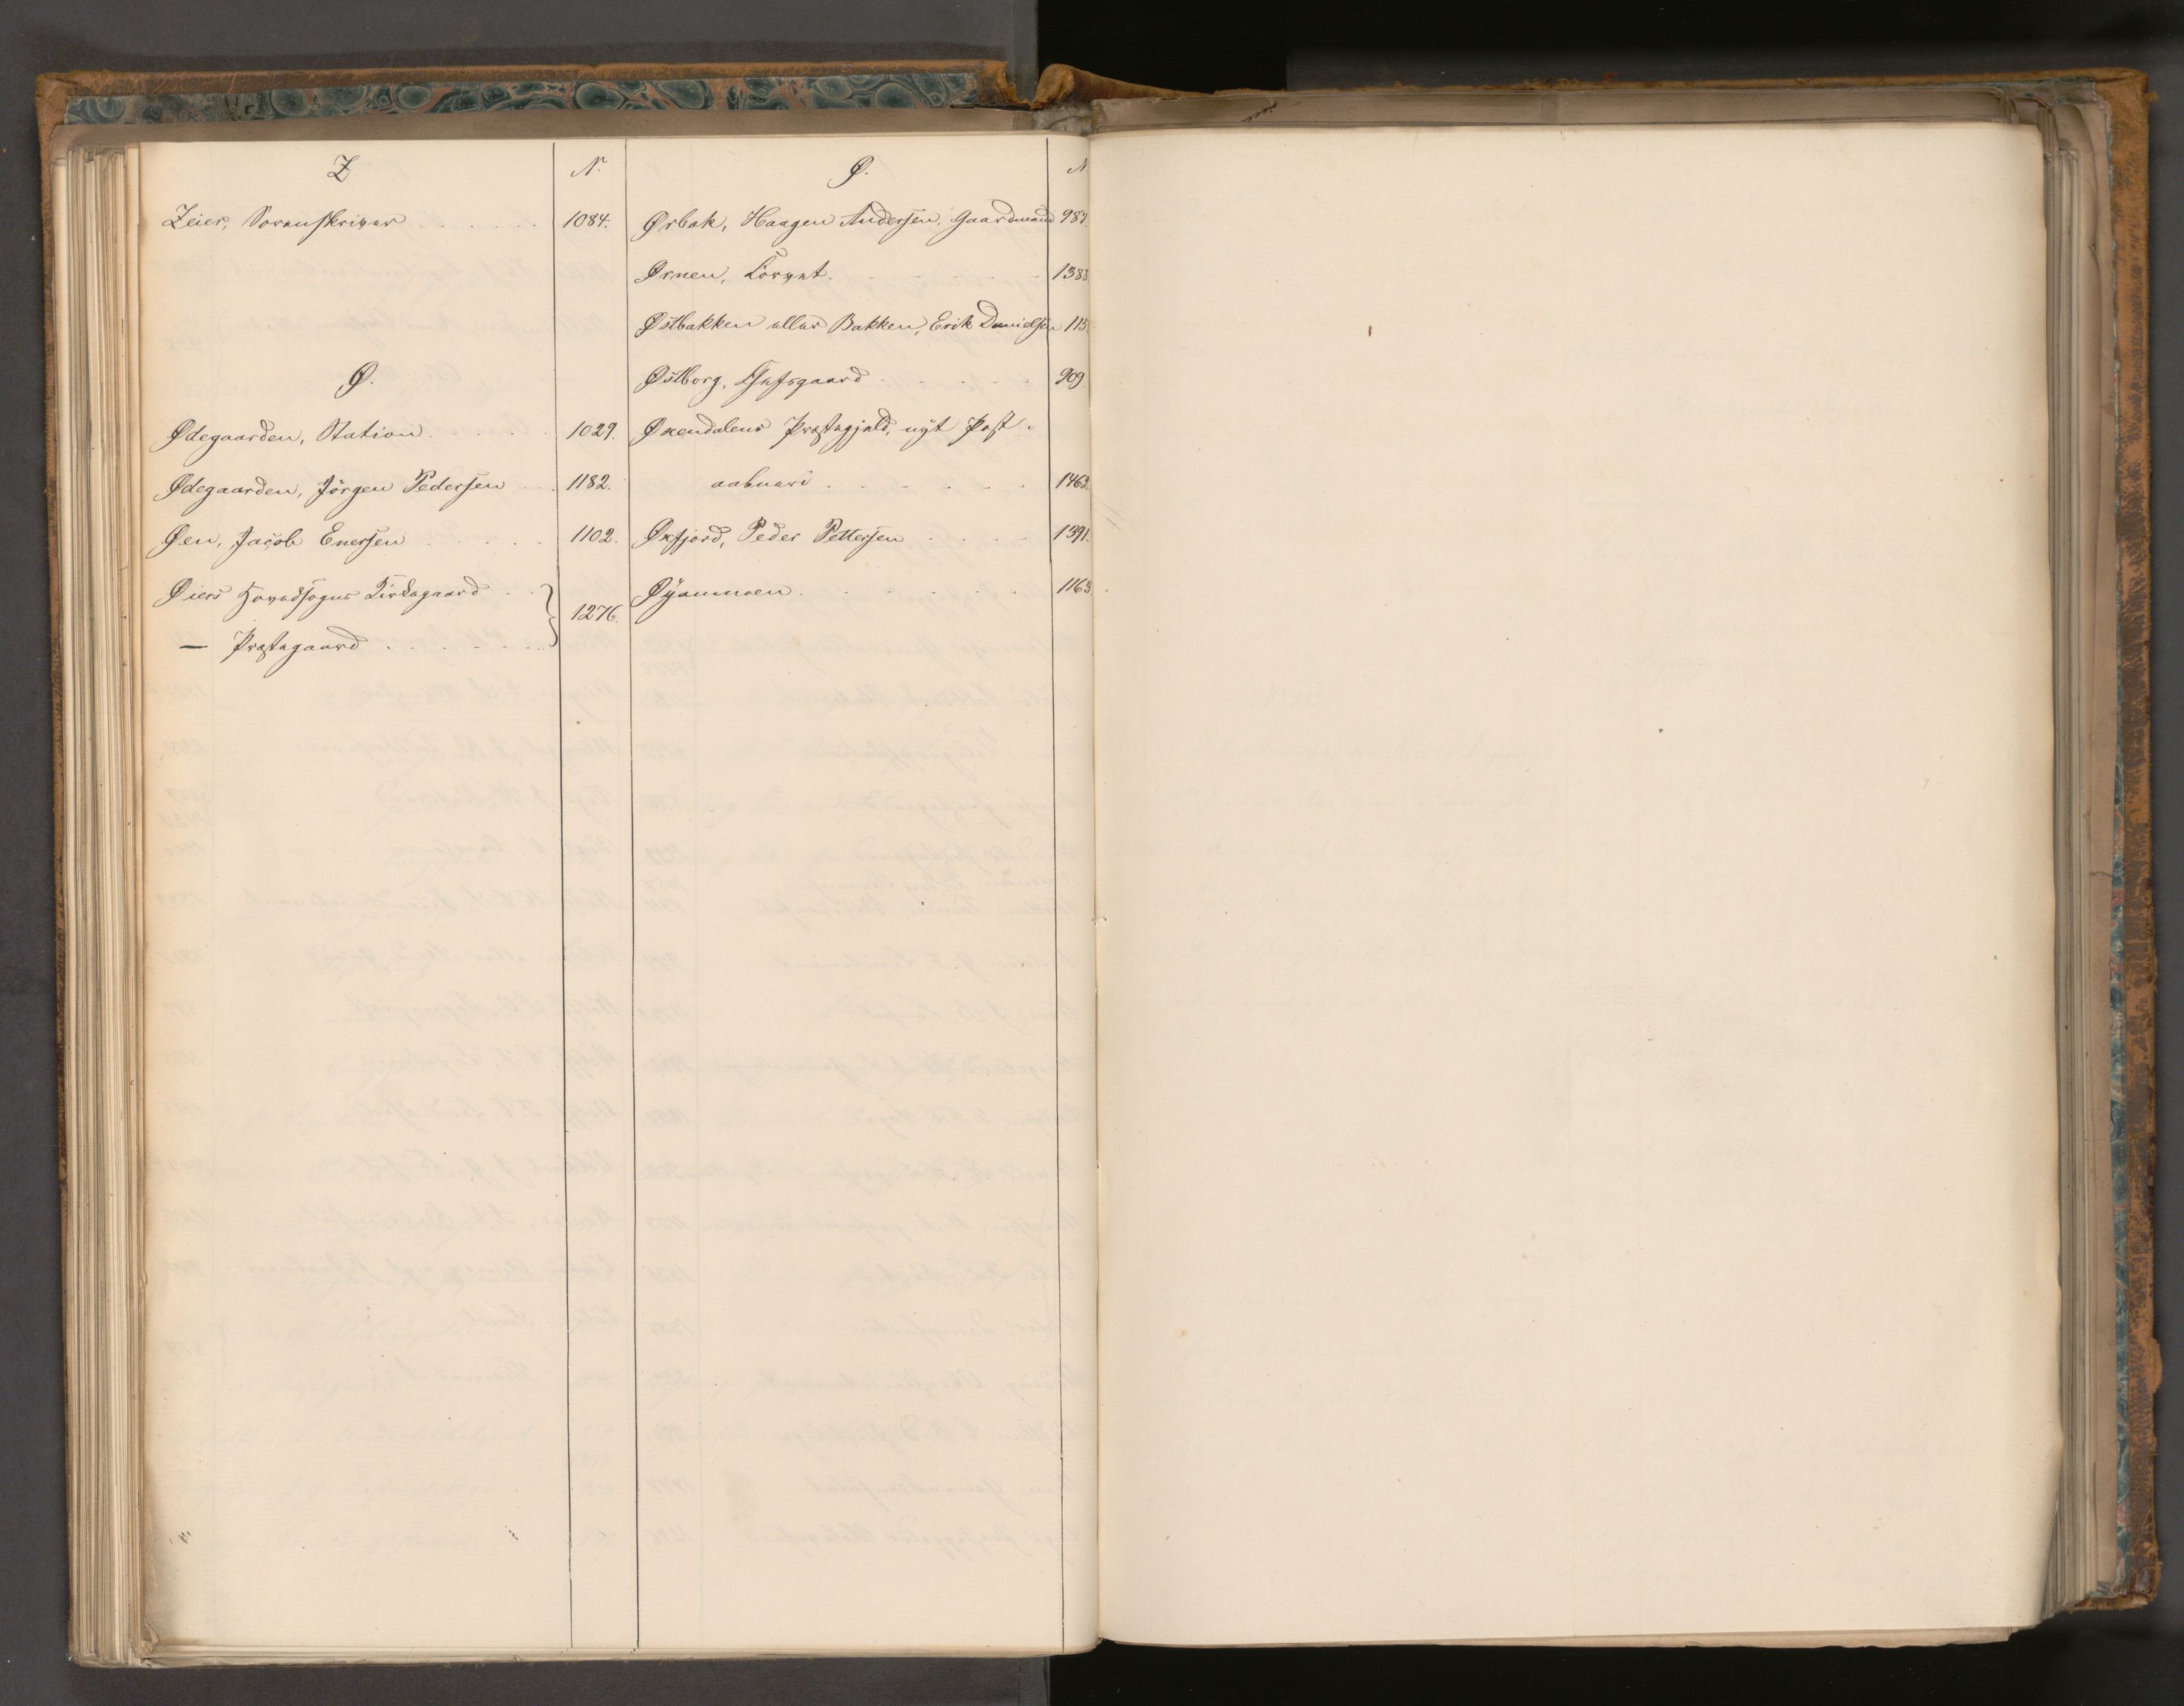 Z
N.
Zeier, Sorenskriver 1084.
Ø.
Ødegaarden, Station 1029.
Ødegaarden, Jörgen Pedersen 1182.
Øen, Jacob Enersen 1102.
Øiers Hovedsogns Kirkegaard
1276.
— Præstegaard
Ø.
N
Ørbæk, Haagen Andersen, Gaardmand 987.
Ørnen, Corvet 1388.
Østbakken eller Bakken, Erik Danielsen 115
Østborg, 909
Øxendalens Præstegjeld, nyt Post-
aabneri 1462
Øxfjord, Peder Pettersen 1391.
Øyanmoen 1163